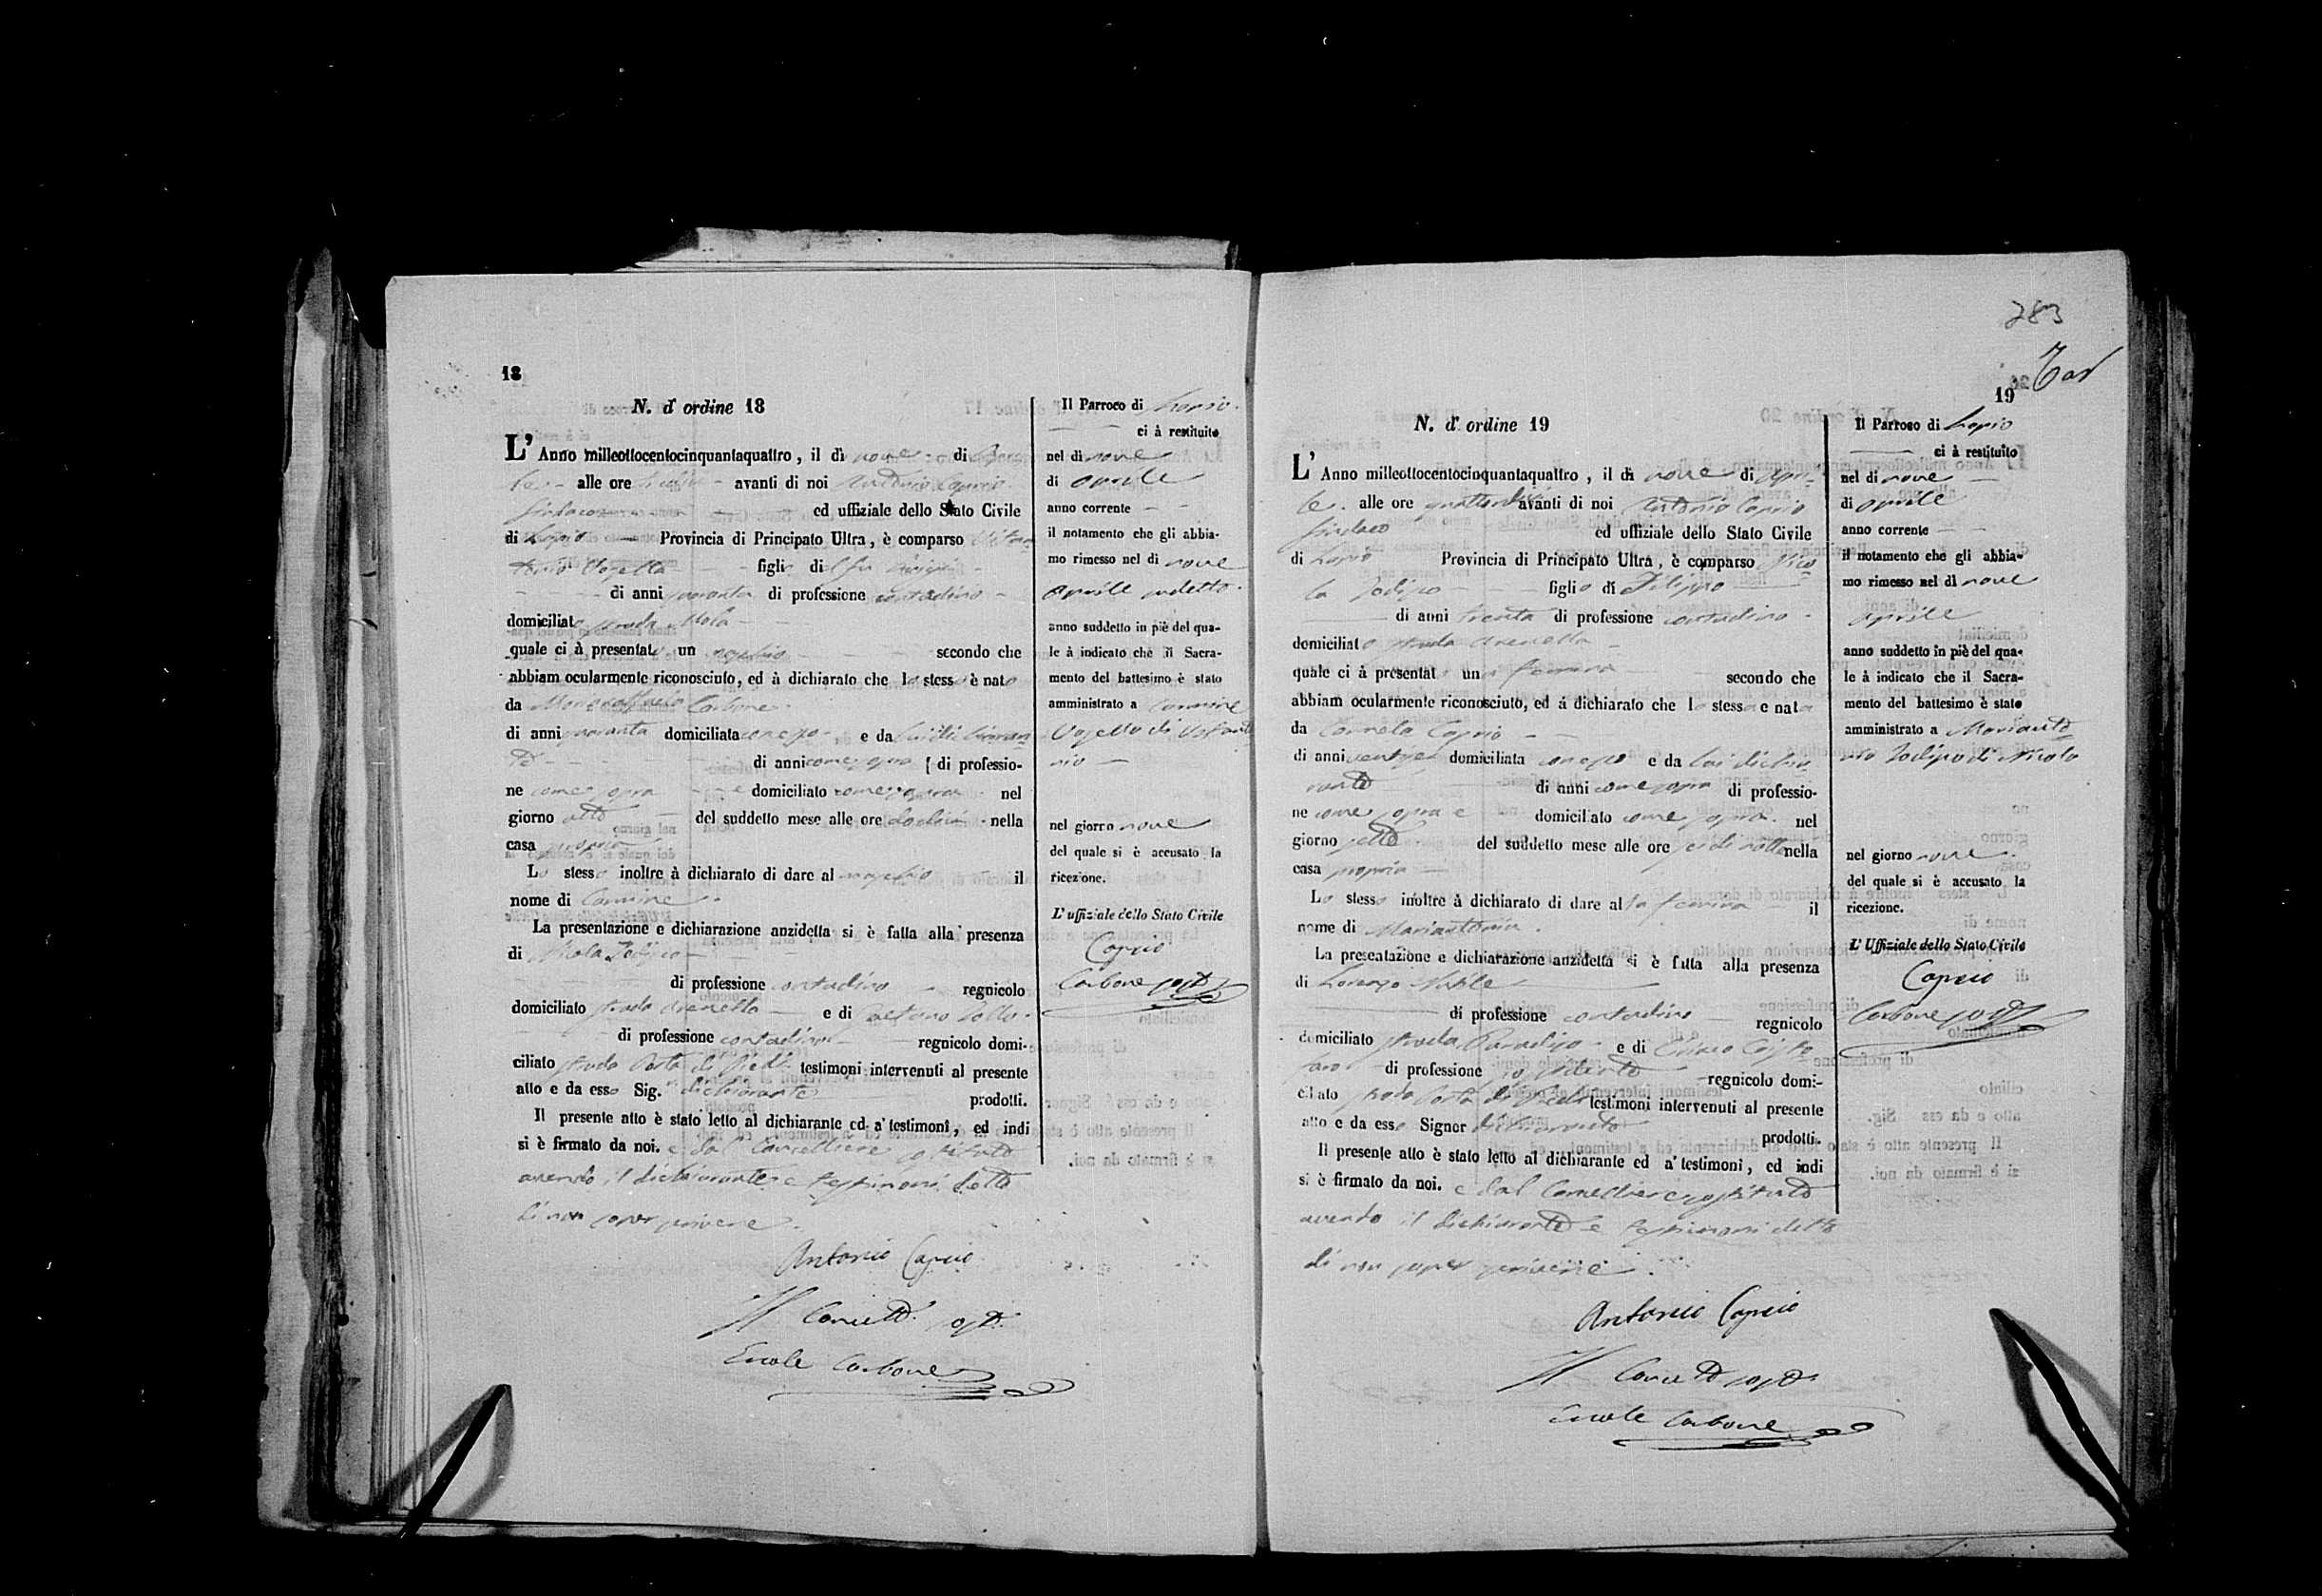 18
N. d' ordine 18
L' Anno milleottocentocinquantaquattro, il dì nove di Apri
le alle ore avanti di noi Antonio Caprio
Sindaco ed uffiziale dello Stato Civile
di Lapio Provincia di Principato Ultra, è comparso
figlio di
di anni quaranta di professione contadino
domiciliato strada Mola
quale ci à presentato un maschio secondo che
abbiam ocularmente riconosciuto, ed à dichiarato che lo stesso è nato
da Carbone
di anni quaranta domiciliata e da
di anni come sopra di professio-
ne come sopra e domiciliato come sopra nel
giorno otto del suddetto mese alle ore dodici nella
casa propria
Lo stesso inoltre à dichiarato di dare al maschio il
nome di Carmine
La presentazione e dichiarazione anzidetta si è fatta alla presenza
di Nicola
di professione contadino regnicolo
domiciliato strada Arenella e di Gaetano
di professione contadino regnicolo domi-
ciliato strada Porta di testimoni intervenuti al presente
atto e da esso Sig. dichiarante prodotti.
Il presente atto è stato letto al dichiarante ed a' testimoni, ed indi
si è firmato da noi. e dal Cancelliere sostituto
avendo il dichiarante e testimoni detto
di non saper scrivere.
Antonio Caprio
Il Cancell. sost.
Ercole Carbone
Il Parroco di Lapio
ci à restituito
nel dì nove
di aprile
anno corrente
il notamento che gli abbia-
mo rimesso nel dì nove
aprile sudetto
anno suddetto in piè del qua-
le à indicato che il Sacra-
mento del battesimo è stato
amministrato a Carmine
di
nio
nel giorno nove
del quale si è accusato la
ricezione.
L' uffiziale dello Stato Civile
Caprio
Carbone sost.
283
19
N. d' ordine 19
L' Anno milleottocentocinquantaquattro, il dì nove di Apri-
le alle ore quattordici avanti di noi Antonio Caprio
Sindaco ed uffiziale dello Stato Civile
di Lapio Provincia di Principato Ultra, è comparso Nico
la figlio di Filippo
di anni trenta di professione contadino
domiciliato strada Arenella
quale ci à presentat una femina secondo che
abbiam ocularmente riconosciuto, ed à dichiarato che la stessa e nata
da Carmela Caprio
di anni domiciliata e da lui dichia
rante di anni come sopra di professio-
ne come sopra e domiciliato come sopra nel
giorno sette del suddetto mese alle ore sei di notte nella
casa propria
Lo stesso inoltre à dichiarato di dare alla femina il
nome di Mariantonia.
La presentazione e dichiarazione anzidetta si è fatta alla presenza
di Lorenzo
di professione contadino regnicolo
domiciliato strada e di
di professione regnicolo domi-
ciliato strada Porta di testimoni intervenuti al presente
atto e da esso Signor dichiarante prodotti.
Il presente atto è stato letto al dichiarante ed a' testimoni, ed indi
si è firmato da noi. e dal Cancelliere sostituto
avendo il dichiarante e testimoni detto
di non saper scrivere.
Antonio Caprio
Il Cancell. sost.
Ercole Carbone
Il Parroco di Lapio
ci à restituito
nel di nove
di aprile
anno corrente
il notamento che gli abbia-
mo rimesso nel dì nove
aprile
anno suddetto in piè del qua-
le à indicato che il Sacra-
mento del battesimo è stato
amministrato a Marianto
nia di Nicola
nel giorno nove
del quale si è accusato la
ricezione.
L' Uffiziale dello Stato Civile
Caprio
Carbone sost.